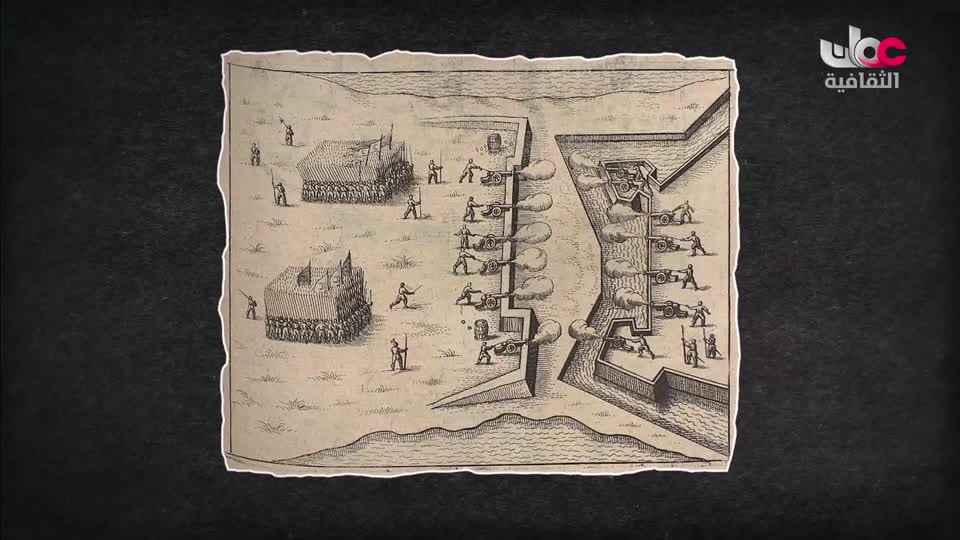 عمان
الثقافية